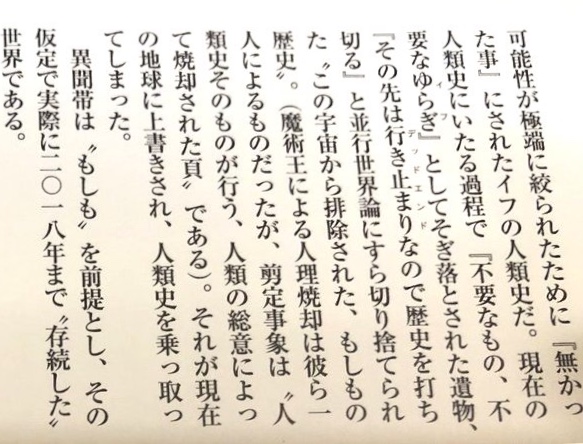 可能性が極端に絞られたために『無かっ
た事』にされたイフの人類史だ。現在の
人類史にいたる過程で『不要なもの、不
要なゆらぎ』としてそぎ落とされた遺物、
『その先は行き止まりなので歴史を打ち
切る』と並行世界論にすら切り捨てられ
た〝この宇宙から排除された、もしもの
歴史〟。(魔術王による人理焼却は彼ら一
人によるものだったが、剪定事象は〝人
類史そのものが行う、人類の総意によっ
て焼却された頁〟である)。それが現在
の地球に上書きされ、人類史を乗っ取っ
てしまった。
異聞帯は〝もしも〟を前提とし、その
仮定で実際に二〇一八年まで〝存続した〟
世界である。